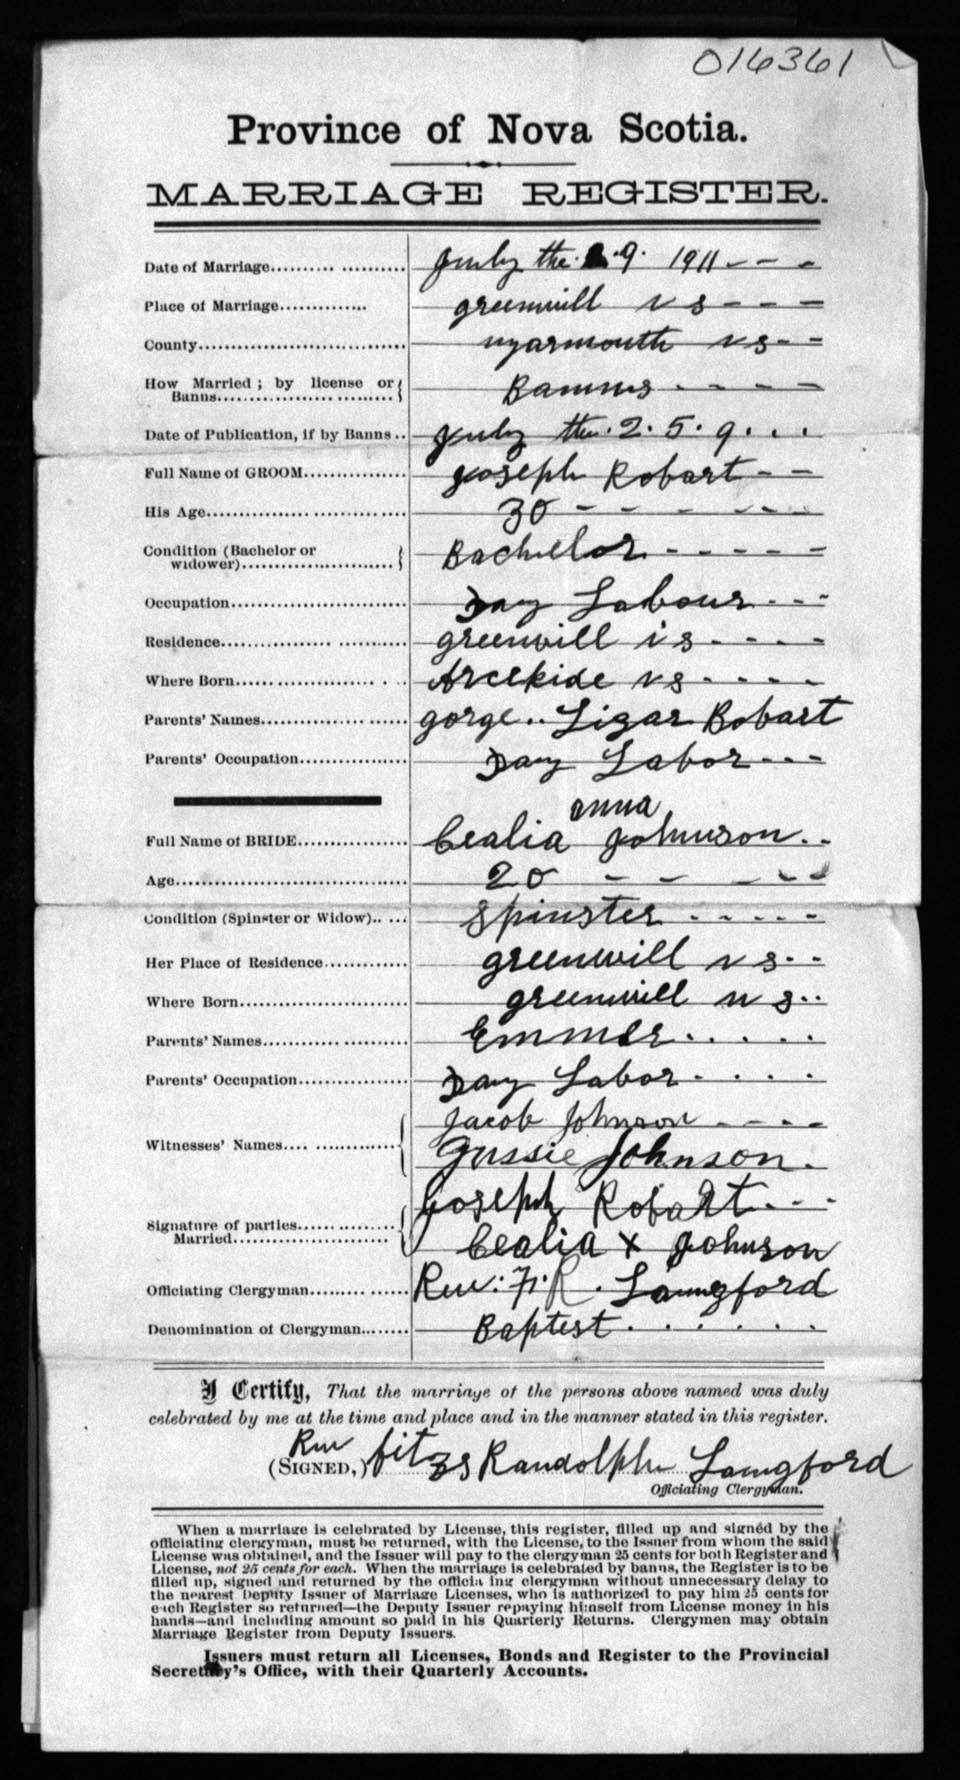 016361
Province of Nova Scotia.
MARRIAGE REGISTER.
Date of Marriage.......... July the 29. 1911 - - -
Place of Marriage............. greenvill ns - - -
County................................. yarmouth ns - -
How Married ; by license or Banns......................... Banns - - - -
Date of Publication, if by Banns.. July the. 2. 5. 9. . . .
Full Name of GROOM................ Joseph Robart - -
His Age................................ 30 - - - - - -
Condition (Bachelor or widower)........................ Bachellor - - - - -
Occupation............................ Day Labour - - -
Residence.............................. greenvill ns - - - -
Where Born........................... ns - - - -
Parents' Names...................... gorge .. Lizar Robart
Parents' Occupation................ Day Labor - - -
anna
Full Name of BRIDE................ Cealia Johnson . .
Age..................................... 20 - - - - -
Condition (Spinster or Widow)..... Spinster - - - - -
Her Place of Residence............ greenvill ns - -
Where Born........................... greenvill ns . .
Parents' Names...................... Emmer . . . . .
Parents' Occupation................ Day Labor . . . .
Jacob Johnson - - - -
Witnesses' Names................... Gussie Johnson .
Joseph Robart - - -
Signature of parties Married.......................... Cealia X Johnson
Officiating Clergyman.............. Rev: F. R. Langford
Denomination of Clergyman....... Baptest . . . . . .
I Certify, That the marriage of the persons above named was duly
celebrated by me at the time and place and in the manner stated in this register.
Rev
(SIGNED,) fitzs Randolph Langford
Officiating Clergyman.
When a marriage is celebrated by License, this register, filled up and signed by the
officiating clergyman, must be returned, with the License, to the Issuer from whom the said
License was obtained, and the Issuer will pay to the clergyman 25 cents for both Register and
License, not 25 cents for each. When the marriage is celebrated by banns, the Register is to be
filled up, signed and returned by the officia ing clergyman without unnecessary delay to
the nearest Deputy Issuer of Marriage Licenses, who is authorized to pay him 25 cents for
each Register so returned—the Deputy Issuer repaying himself from License money in his
hands—and including amount so paid in his Quarterly Returns. Clergymen may obtain
Marriage Register from Deputy Issuers.
Issuers must return all Licenses, Bonds and Register to the Provincial
Secretary's Office, with their Quarterly Accounts.